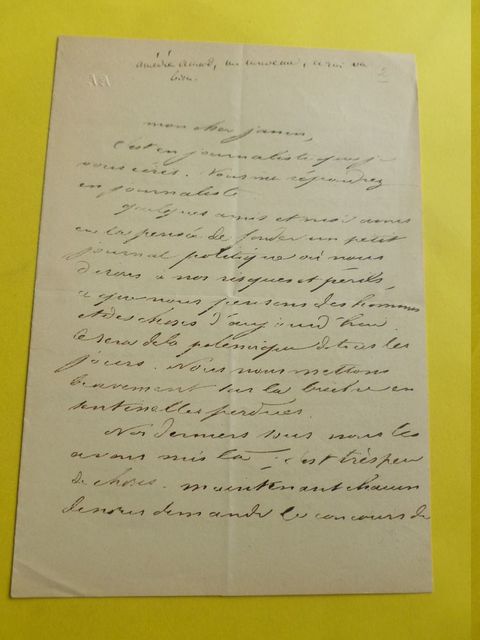 amédée achard, un nouveau, le roi va
bien.
2
mon cher janin,
C'est en journaliste que je
vous écris. Vous me répondrez
en journaliste
quelques amis et moi avons
eu la pensée de fonder un petit
journal politique où nous
dirons à nos risques et périls,
ce que nous pensons des hommes
et des choses d'aujourd'hui.
ce sera de la polémique de tous les
jours. Nous nous mettons
bravement sur la brèche en
sentinelles perdues.
Nos derniers sous nous les
avons mis là ; c'est très peu
de chose. maintenant chacun
de nous demande le concours de